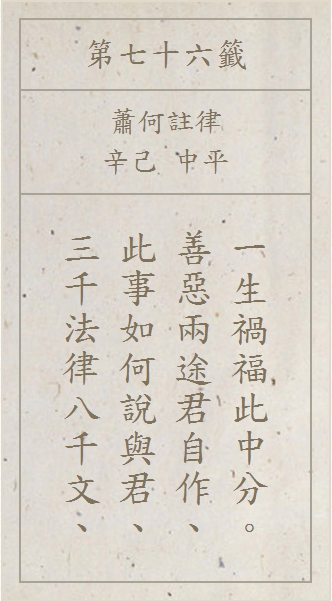 第七十六籤
蕭何註律
辛己 中平
三千法律八千文、
此事如何說與君、
善惡兩途君自作、
一生禍福此中分。